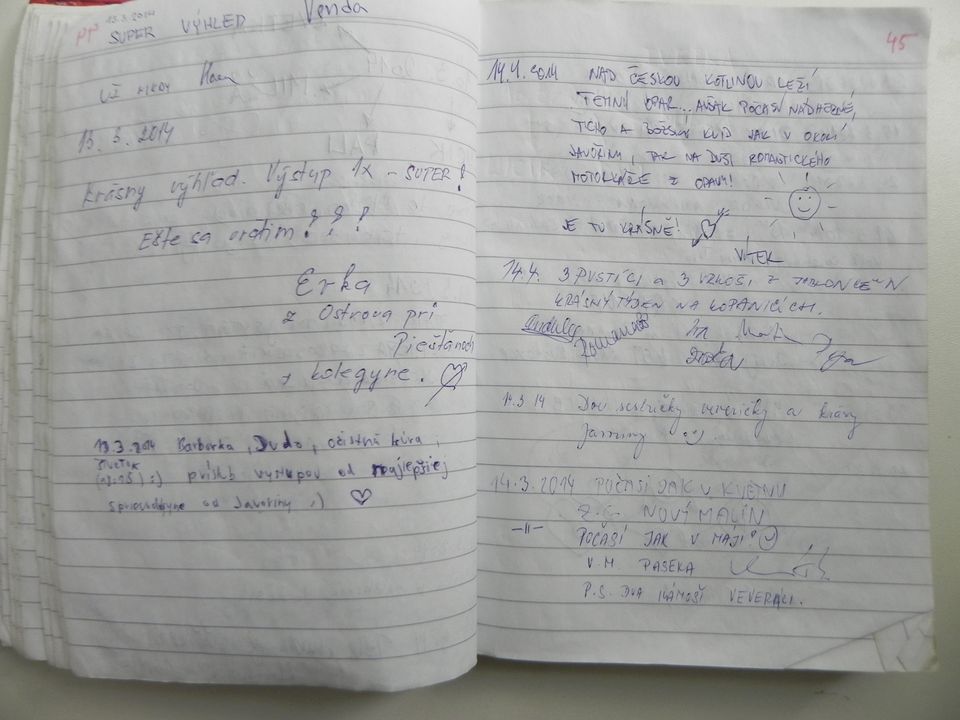 13.3.2014 Venda
SUPER VÝHLED
UŽ NIKDY
13. 3. 2014
Krásny výhlad. Výstup 1x - SUPER!
Ešte sa vrátim! ! !
Erka
z Ostrova pri
Piešťanoch
+ kolegyne.
13.3.2014 Barborka, Dudo, očistná kúra i
ŠTVRTOK
:) prísľub výstupov od najlepšiej
sprievodkyne od Javoriny :)
45
14.4.2014 NAD ČESKOU KOTLINOU LEŽÍ
TEMNÝ OPAR... AVŠAK POČASÍ NÁDHERNÉ,
TICHO A BOŽSKÝ KLID JAK V OKOLÍ
JAVOŘINY, TAK NA DUŠI ROMANTICKÉHO
MOTORKÁŘE Z OPAVY!
JE TU KRÁSNĚ!
VÍTEK
14.4. 3 PUSTÍCI a 3 z
KRÁSNÝ TÝDEN NA KOPANICÍCH.
14.3.14 Dvě sestričky veveričky a krávy
14.3.2014 POČASÍ JAK V KVĚTNU
NOVÝ MALÍN
-11- POČASÍ JAK V MÁJI!
V.M. PASEKA
P.S. DVA KÁMOŠI VEVERÁCI.